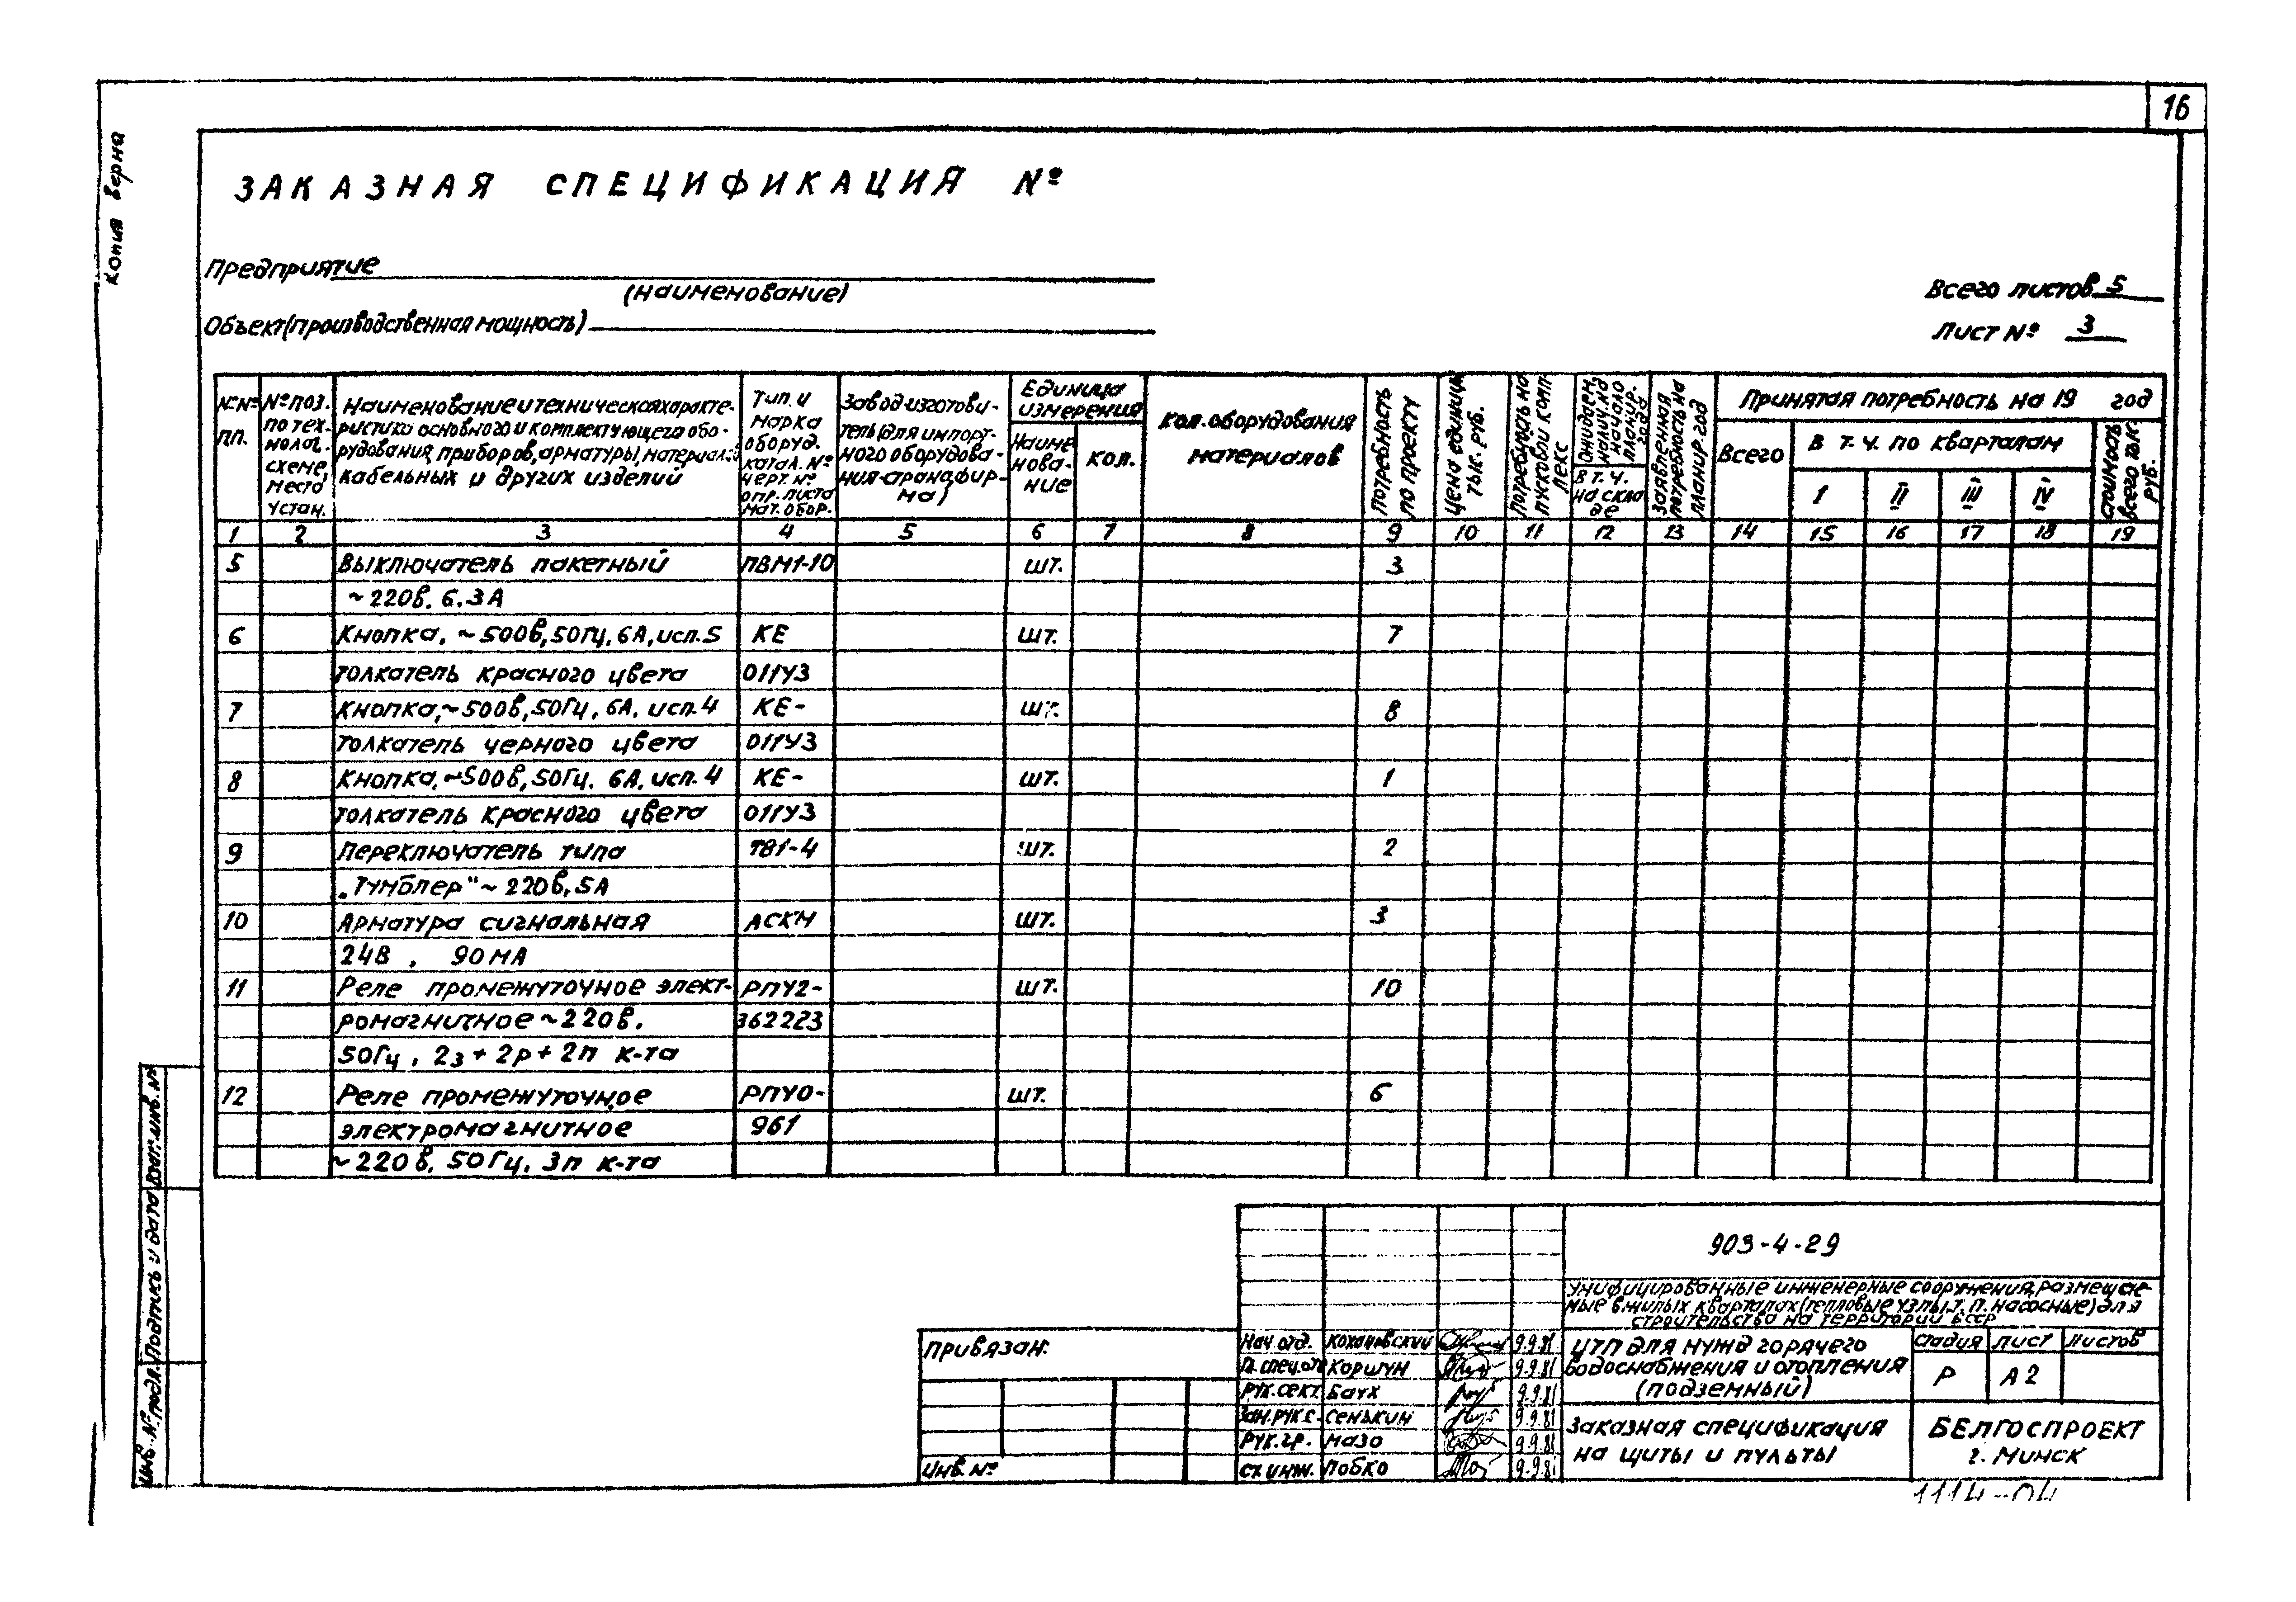 16
Копия верна
ЗАКАЗНАЯ СПЕЦИФИКАЦИЯ №
Предприятие
(наименование)
Объект(производственная мощность)
Всего листов 5
Лист № 3
№№ пп.
№ поз. по тех-нолог. схеме, место устан.
Наименование и техническая характе-
ристика основного и комплектующего обо-
рудования, приборов, арматуры, материалов
кабельных и других изделий
Тип. и
марка
оборуд.
катал. №
черт. №
опр. листа
мат. обор.
Завод-изготови-
тель(для импорт-
ного оборудова-
ния-страна, фир-
ма)
Единица
измерения
Наиме
нова-
ние
кол.
кол. оборудования
материалов
Потребность по проекту
Цена единицы тыс. руб.
Потребность на пусковой комп-лекс
Ожидаем. налич. на начало планир. года
В т. ч. на скла де
Заявленная потребность на планир год
Принятая потребность на 19 год
Всего
В т. ч. по кварталам
I II III IV
стоимость всего тыс. руб.
1 2 3 4 5 6 7 8 9 10 11 12 13 14 15 16 17 18 19
5 Выключатель пакетный ПВМ1-10 шт. 3
~220в. 6.3А
6 Кнопка, ~500в, 50Гц, 6А, исп.5 КЕ шт. 7
толкатель красного цвета 011У3
7 Кнопка, ~500в, 50Гц, 6А, исп. 4 КЕ- шт. 8
толкатель черного цвета 011У3
8 Кнопка, ~500в, 50Гц. 6А, исп. 4 КЕ- шт. 1
толкатель красного цвета 011У3
9 Переключатель типа ТВ1-4 шт. 2
„Тумблер" ~ 220в, 5А
10 Арматура сигнальная АСКМ шт. 3
24В , 90мА
11 Реле промежуточное элект- РПУ2- шт. 10
ромагнитное ~220в. 362223
50Гц, 2з + 2р + 2п к-та
12 Реле промежуточное РПУ0- шт. 6
электромагнитное 961
~220в, 50Гц, 3п к-та
Взат. инв. №
Подпись и дата
Инв. № подл.
903-4-29
Унифицированные инженерные сооружения, размещае-
мые в жилых кварталах(тепловые узлы, т. п. насосные) для
строительства на территории БССР
Привязан:
Инв. №
Нач отд. Кохановский 9.9.81
Гл. спец. отд Коршун 9.9.81
Рук. сект. Баух 9.9.81
Зам. рук. с. Сенькин 9.9.81
Рук. гр. Мазо 9.9.81
Ст. инж. Лобко 9.9.81
ЦТП для нужд горячего
водоснабжения и отопления
(подземный)
стадия лист листов
Р А2
Заказная спецификация
на щиты и пульты
БЕЛГОСПРОЕКТ
г. Минск
1114-04